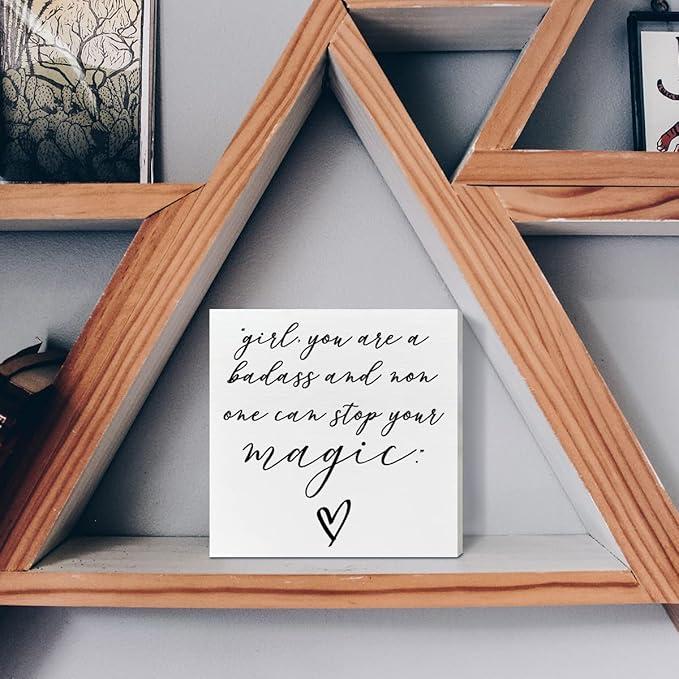 "girl, you are a
badass and non
one can stop your
magic."